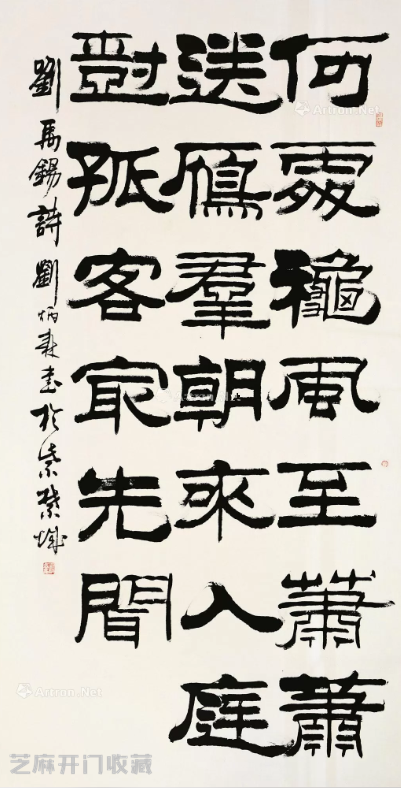 何處龝風至蕭蕭
送鴈羣朝來入庭
尌孤客冣先聞
劉禹錫詩劉炳森書於紫禁城
Artron.Net
Artron.Net
芝麻开门收藏